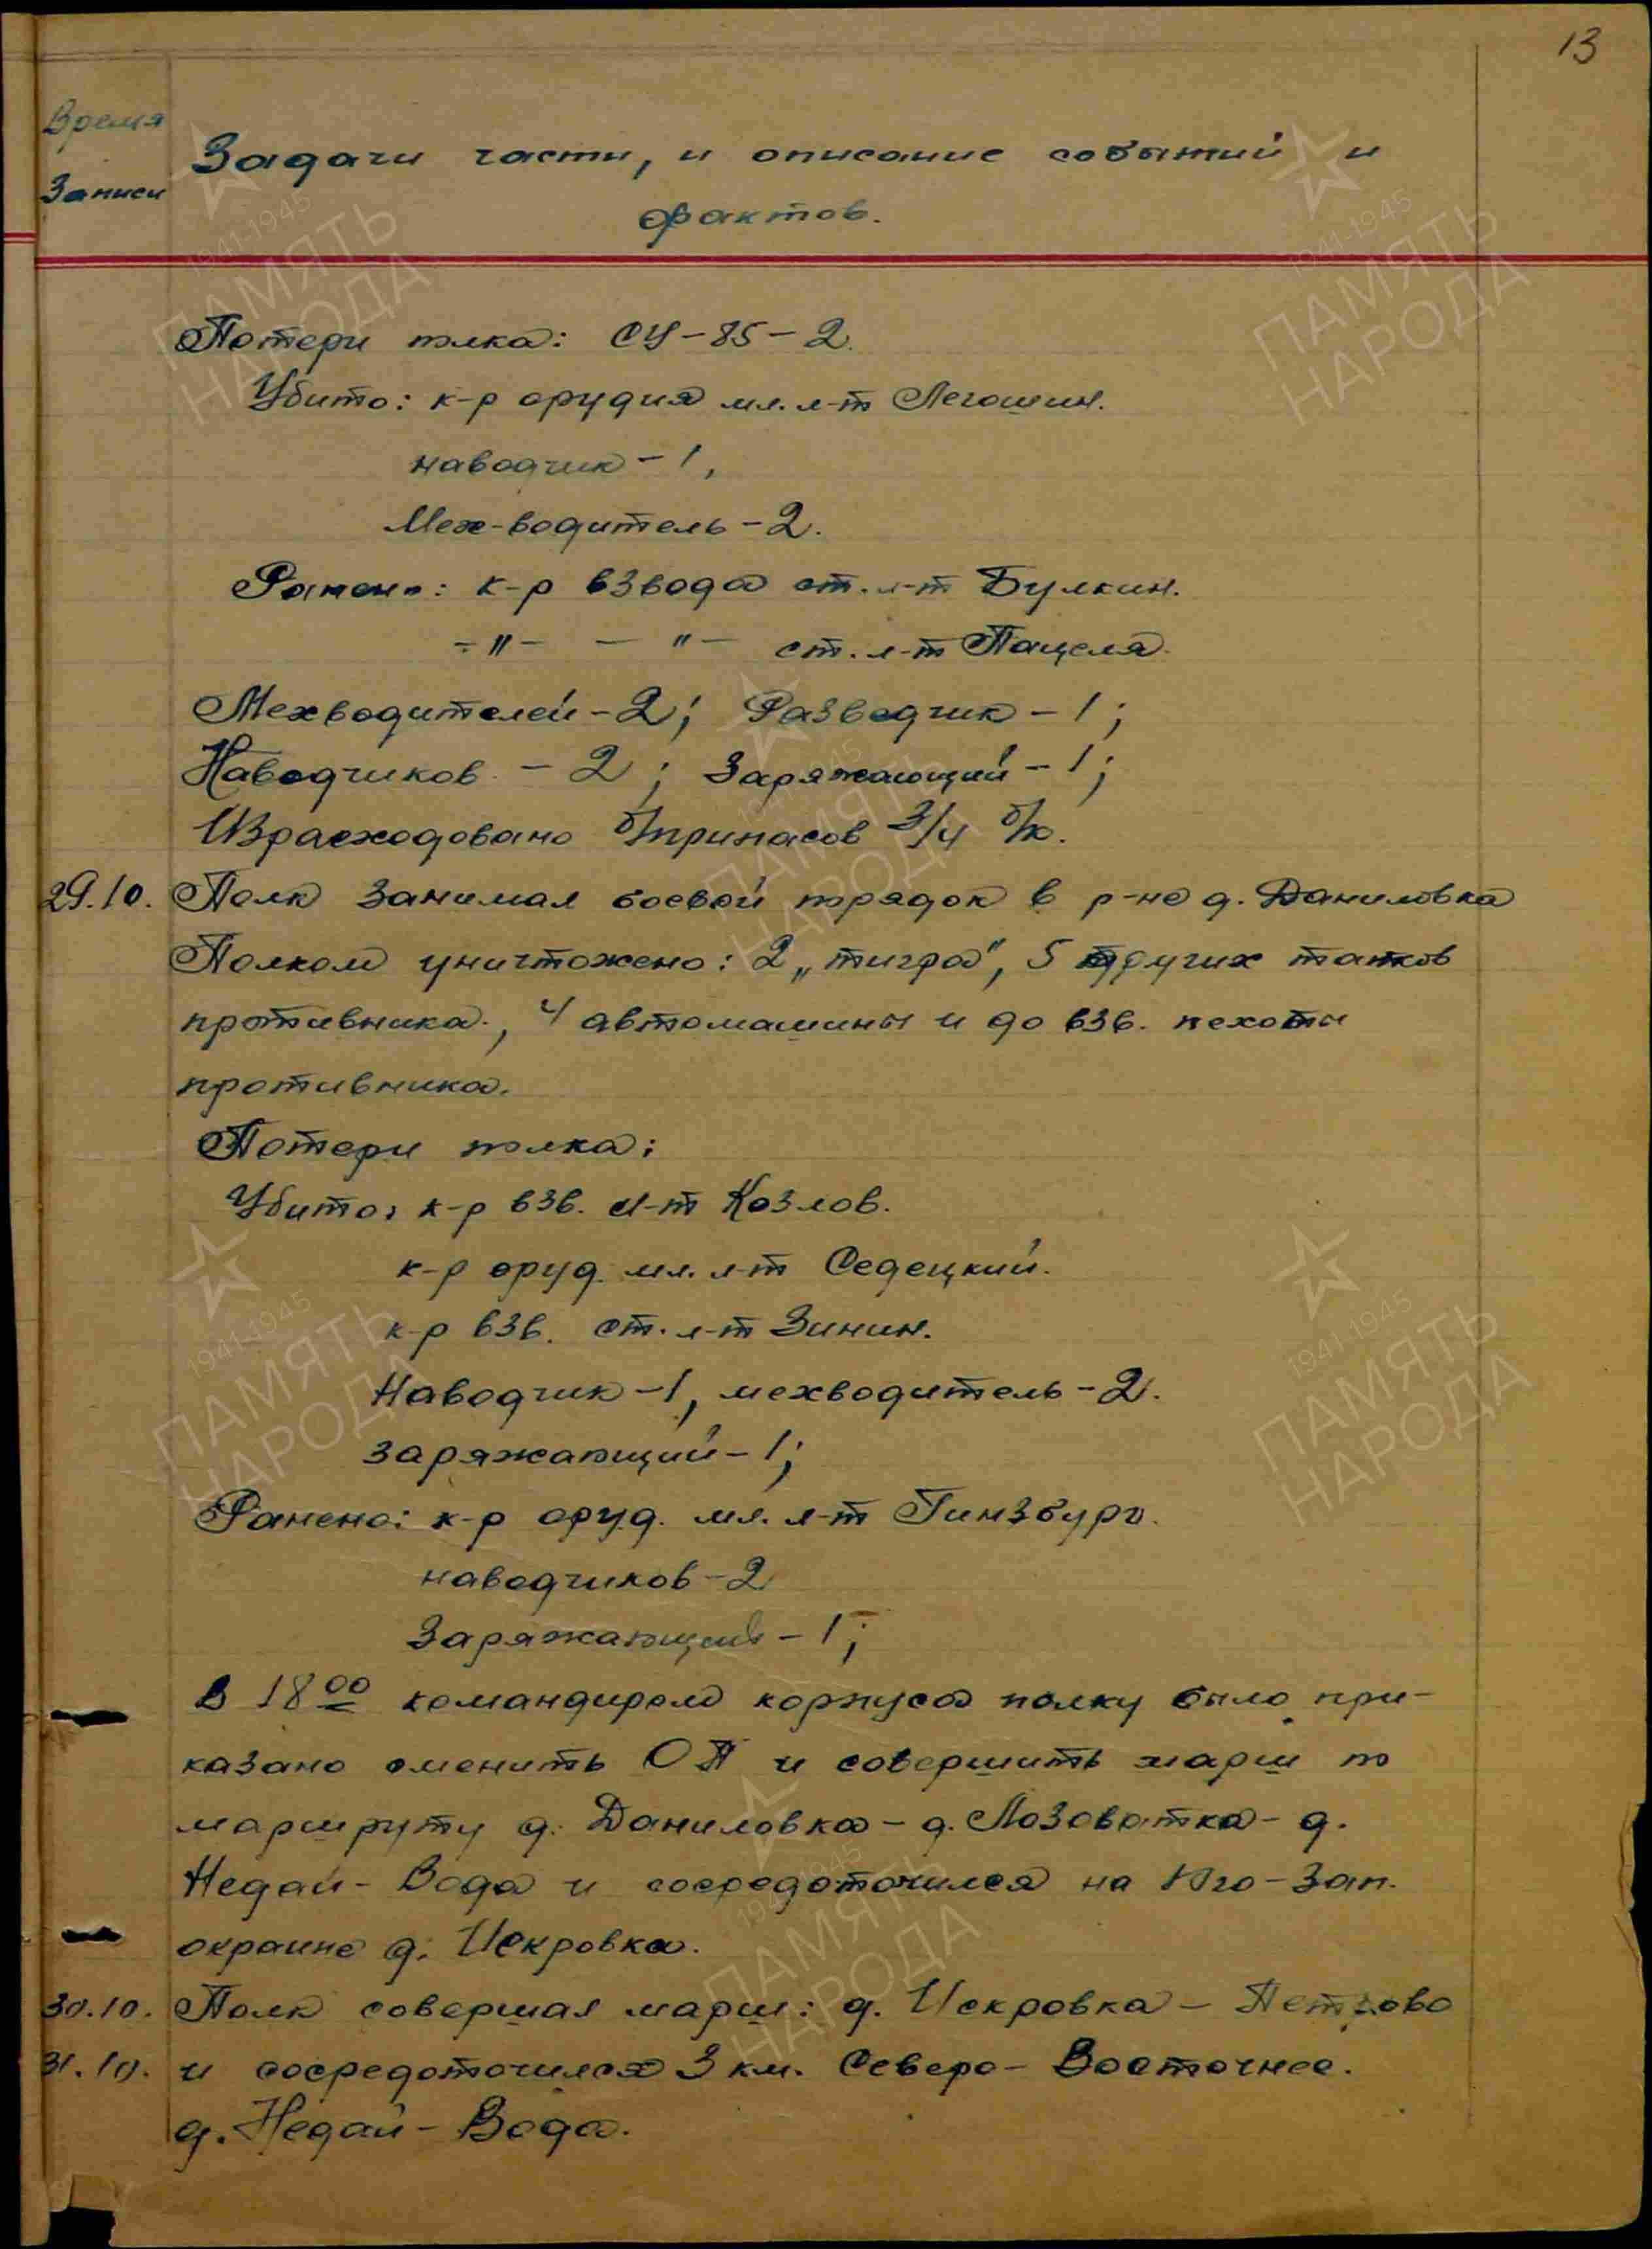 13
Время
Записи
Задачи части, и описание событий и
фактов.
Потери полка: СУ-85-2.
Убито: к-р орудия мл. л-т Легошин.
наводчик - 1,
Мех-водитель - 2.
Ранено: к-р взвода ст. л-т Булкин.
-"- -"- ст. л-т Пацеля.
Мехводителей - 2; Разведчик - 1;
Наводчиков - 2; Заряжающий - 1;
Израсходовано б/припасов 3/4 б/к.
29.10. Полк занимал боевой порядок в р-не д. Даниловка
Полком уничтожено: 2 „тигра", 5 других танков
противника, 4 автомашины и до взв. пехоты
противника.
Потери полка:
Убито: к-р взв. л-т Козлов.
к-р оруд. мл. л-т Седецкий.
к-р взв. ст. л-т Зинин.
Наводчик - 1, мехводитель - 2.
заряжающий - 1;
Ранено: к-р оруд. мл. л-т Гинзбург.
наводчиков - 2
Заряжающий - 1;
В 18 00 командиром корпуса полку было при-
казано сменить ОП и совершить марш по
маршруту д. Даниловка - д. Лозоватка - д.
Недай-Вода и сосредоточился на Юго-Зап.
окраине д. Искровка.
30.10. Полк совершал марш: д. Искровка - Петрово
31.10. и сосредоточился 3 км. Северо-Восточнее.
д. Недай-Вода.
1941-1945
ПАМЯТЬ
НАРОДА
1941-1945
ПАМЯТЬ
НАРОДА
1941-1945
ПАМЯТЬ
НАРОДА
1941-1945
ПАМЯТЬ
НАРОДА
1941-1945
ПАМЯТЬ
НАРОДА
1941-1945
ПАМЯТЬ
НАРОДА